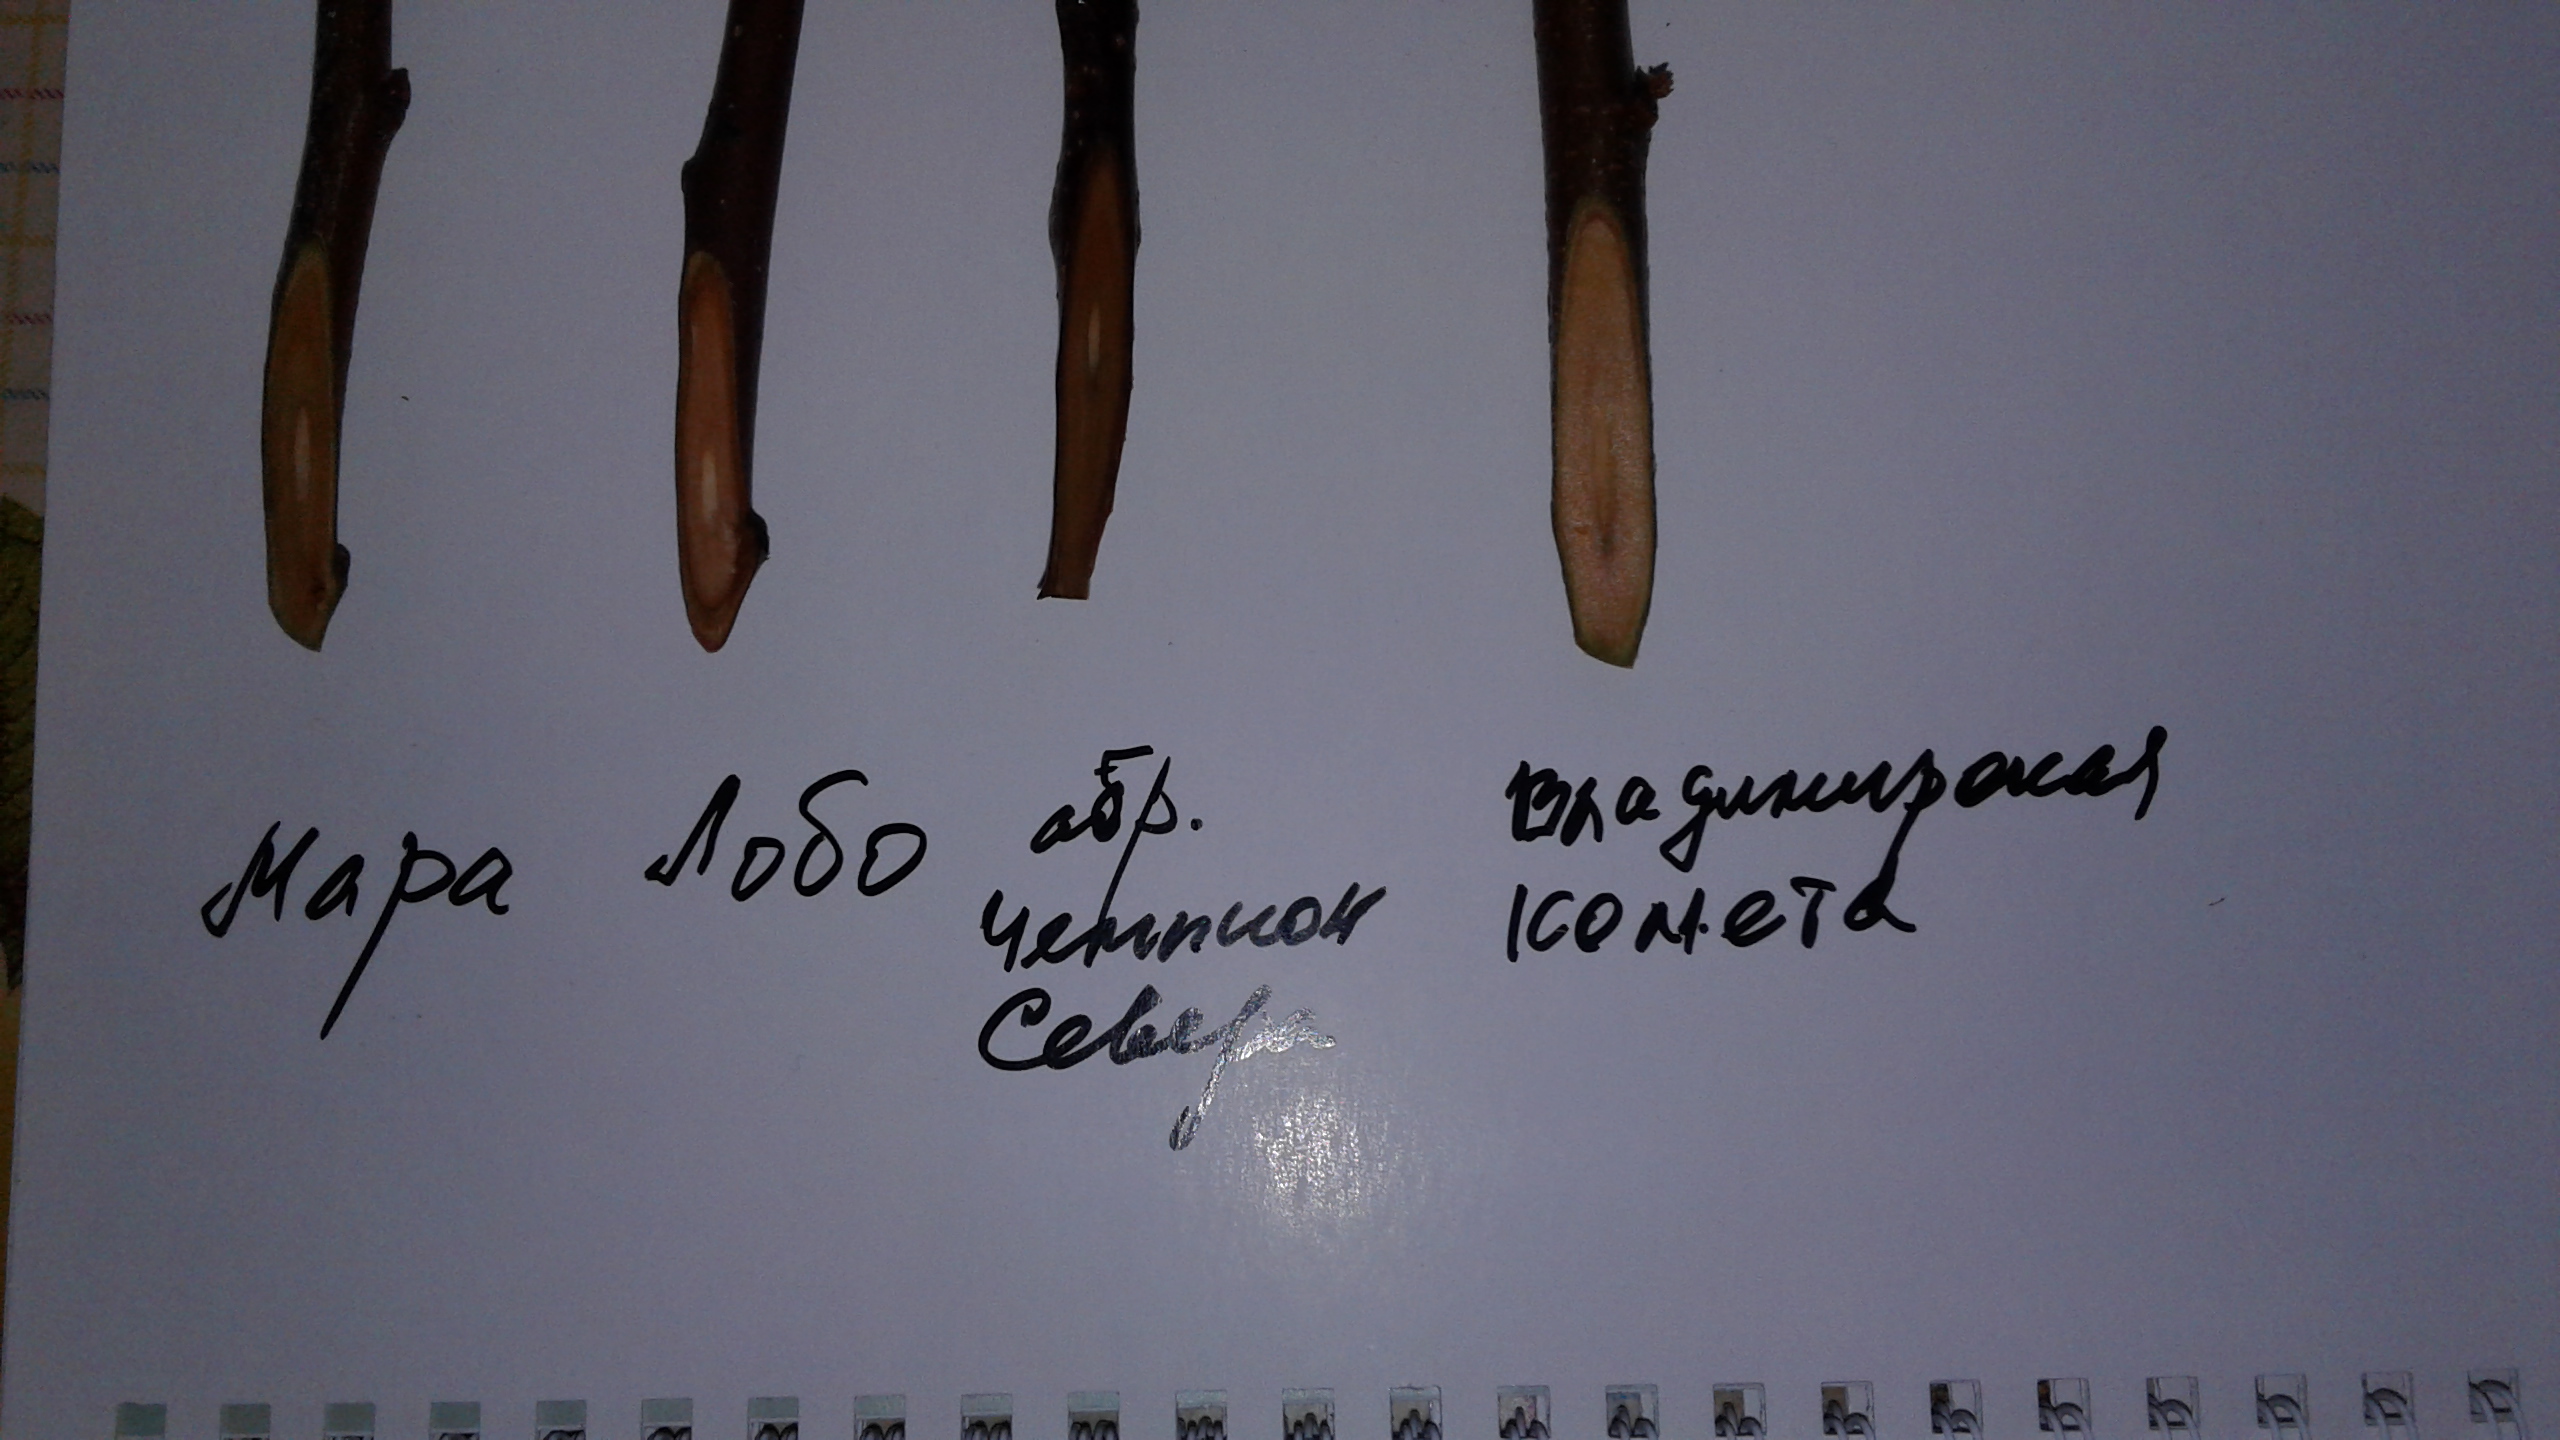 Мара
Лобо
абр.
Чемпион
Севера
Владимирская
комета